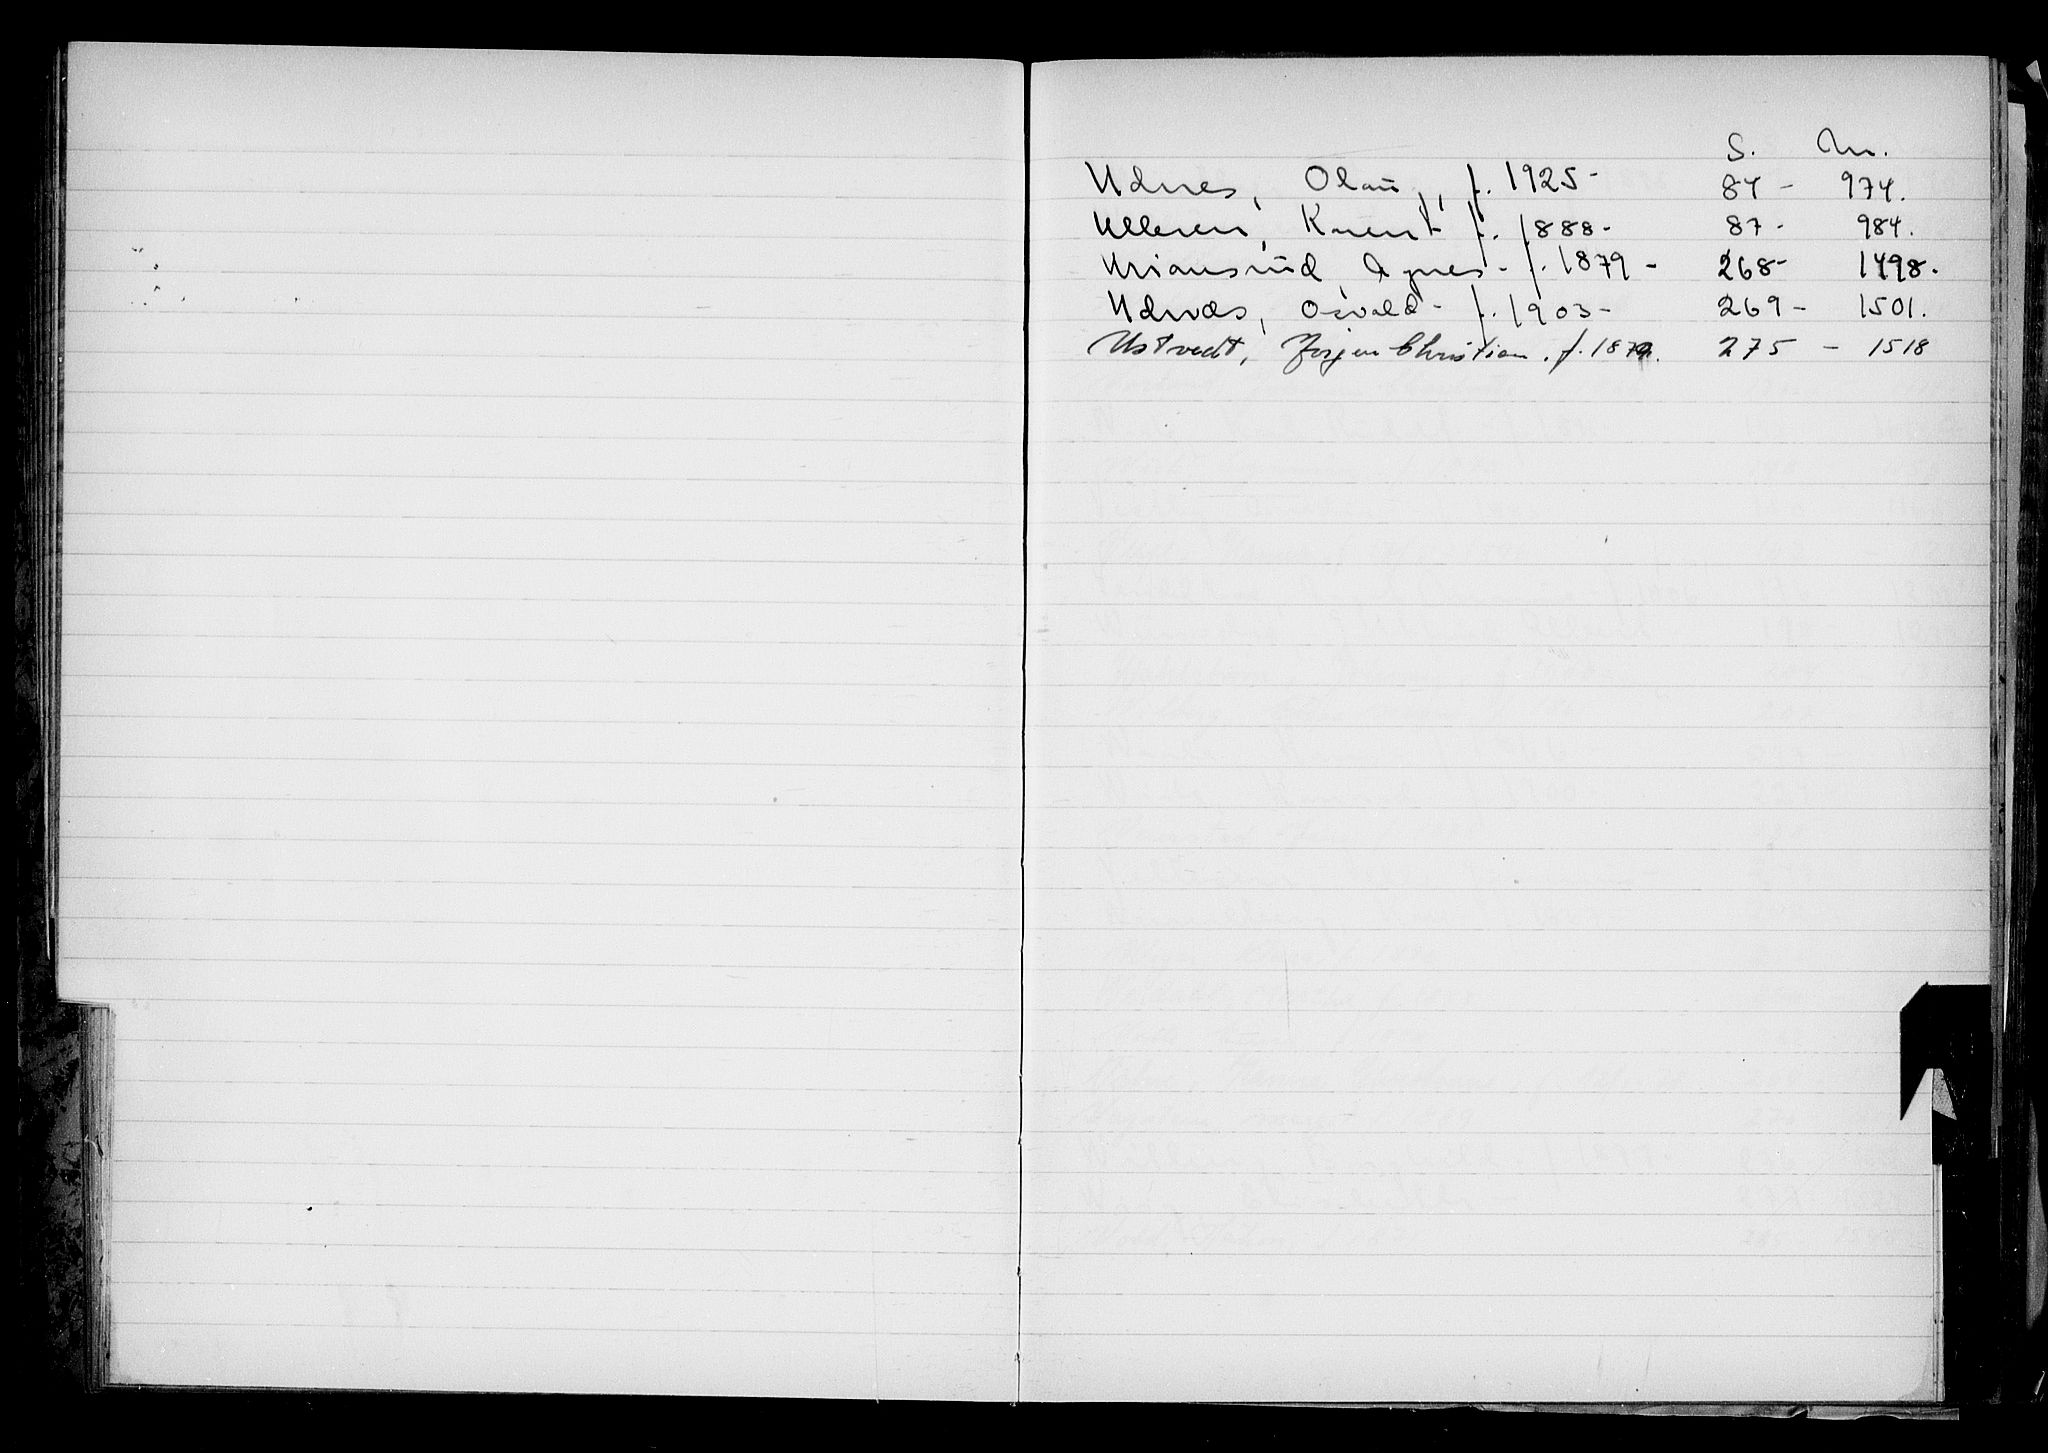 S. Nr.
Udnes, Olau, f. 1925- 84 - 974.
Ulleren, Knent f. 1888- 87 - 984.
Uriansrud, Agnes - f. 1879 - 268- 1498.
Udnæs, Osvald - f. 1903- 269 - 1501.
Ustvedt, Jørgen Christian. f. 1879. 275 - 1518